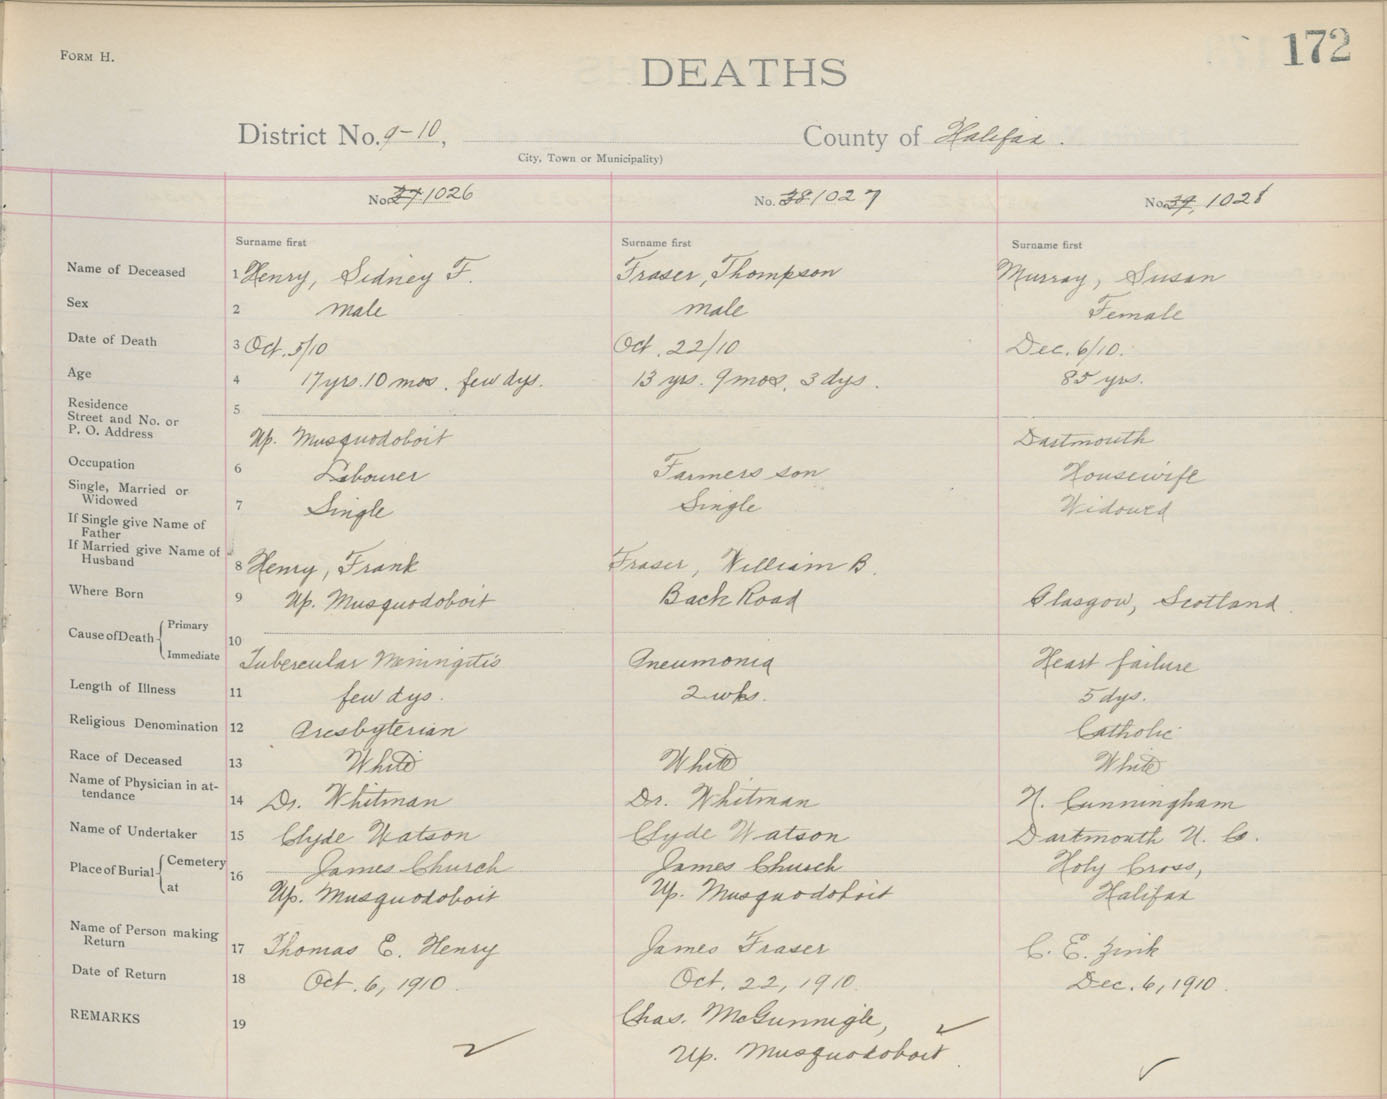 FORM H.
172
DEATHS
District No. 9-10, County of Halifax.
City, Town or Municipality)
No. 37 1026 No. 38 1027 No. 39, 1028
Surname first Surname first Surname first
Name of Deceased 1 Henry, Sidney F. Fraser, Thompson Murray, Susan
Sex 2 male male Female
Date of Death 3 Oct. 5/10 Oct. 22/10 Dec. 6/10.
Age 4 17 yrs. 10 mos. few dys. 13 yrs. 9 mos. 3 dys. 85 yrs.
Residence 5
Street and No. or
P. O. Address Up. Musquodoboit Dartmouth
Occupation 6 Labourer Farmers son Housewife
Single, Married or
Widowed 7 Single Single Widowed
If Single give Name of
Father
If Married give Name of
Husband 8 Henry, Frank Fraser, William B. 
Where Born 9 Up. Musquodoboit Back Road Glasgow, Scotland.
Cause of Death Primary 10
Immediate Tubercular Meningitis Pneumonia Heart failure
Length of Illness 11 few dys. 2 wks. 5 dys.
Religious Denomination 12 Presbyterian Catholic
Race of Deceased 13 White White White
Name of Physician in at-
tendance 14 Dr. Whitman Dr. Whitman N. Cunningham
Name of Undertaker 15 Clyde Watson Clyde Watson Dartmouth U. Co.
Place of Burial Cemetery 16 James Church James Church Holy Cross,
at Up. Musquodoboit Up. Musquodoboit Halifax
Name of Person making
Return 17 Thomas E. Henry James Fraser C. E. Zink
Date of Return 18 Oct. 6, 1910. Oct. 22, 1910. Dec. 6, 1910.
REMARKS 19 Chas. McGunnigle,
Up. Musquodoboit.